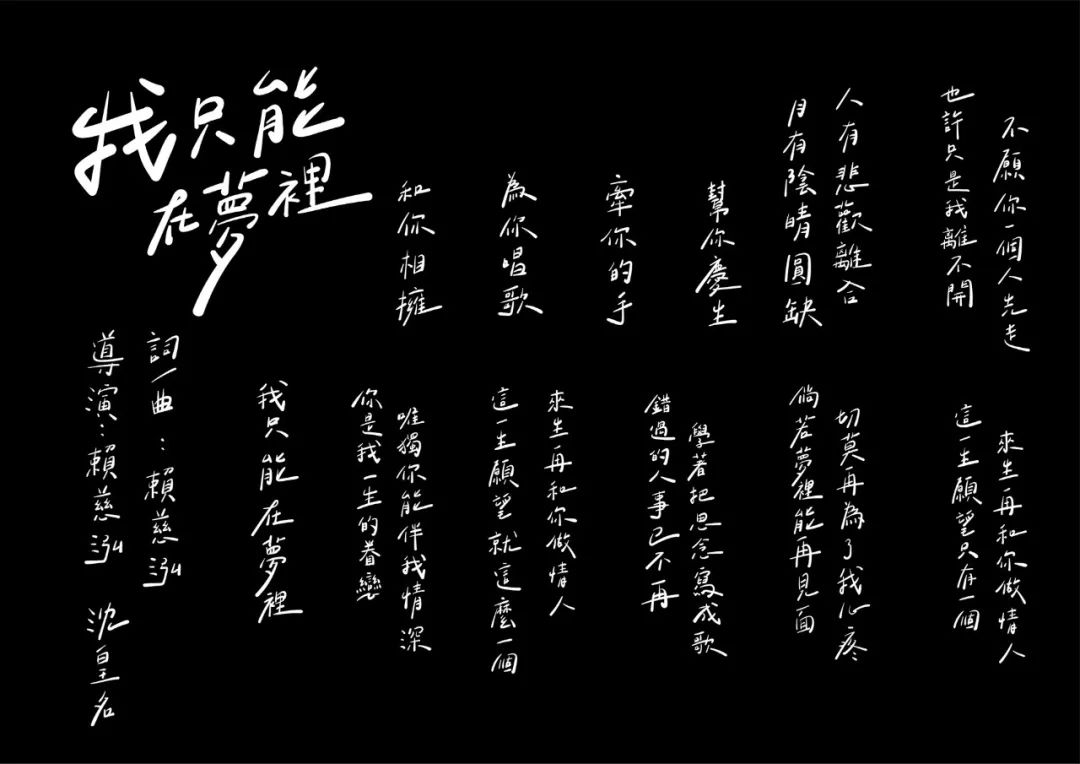 我只能
在夢裡
和你相擁
為你唱歌
牽你的手
幫你慶生
月有陰晴圓缺
人有悲歡離合
也許只是我離不開
不願你一個人先走
導演：賴慈泓 沈皇名
詞/曲：賴慈泓
我只能在夢裡
你是我一生的眷戀
唯獨你能伴我情深
這一生願望就這麼一個
來生再和你做情人
錯過的人事已不再
學著把思念寫成歌
倘若夢裡能再見面
切莫再為了我心疼
這一生願望只有一個
來生再和你做情人